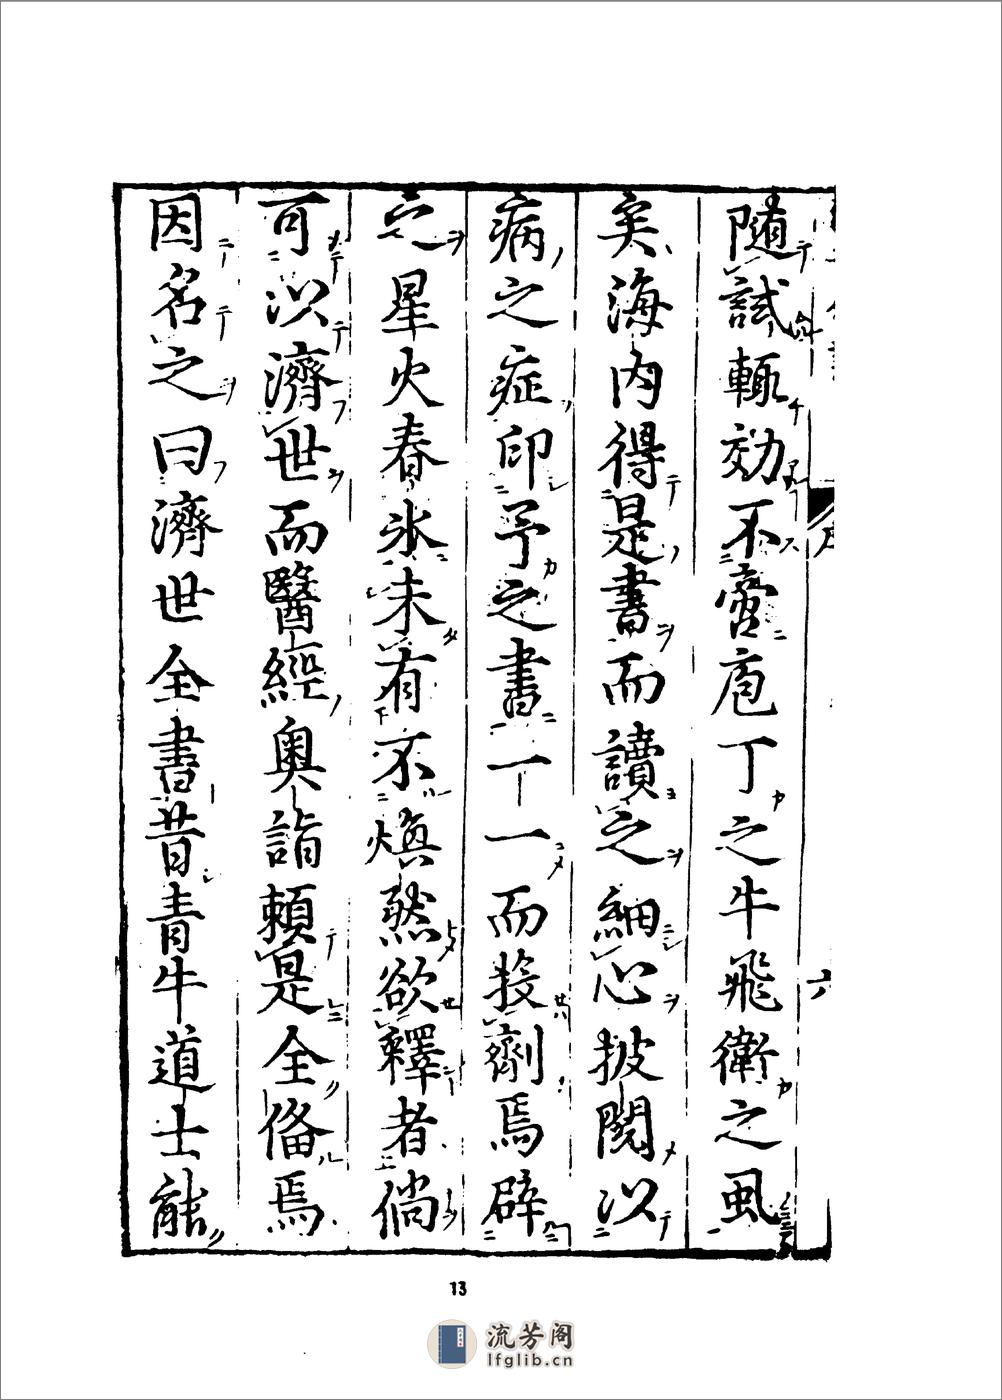 隨試輙効不啻庖丁之牛飛衛之虱
矣海内得是書而讀之細心披閲以
病之症印予之書一一而投劑焉辟
之星火春氷未有不煥然欲釋者倘
可以濟世而醫經奥詣頼是全俻焉
因名之曰濟世全書昔青牛道士能
序
六
13
流芳阁
lfglib.cn